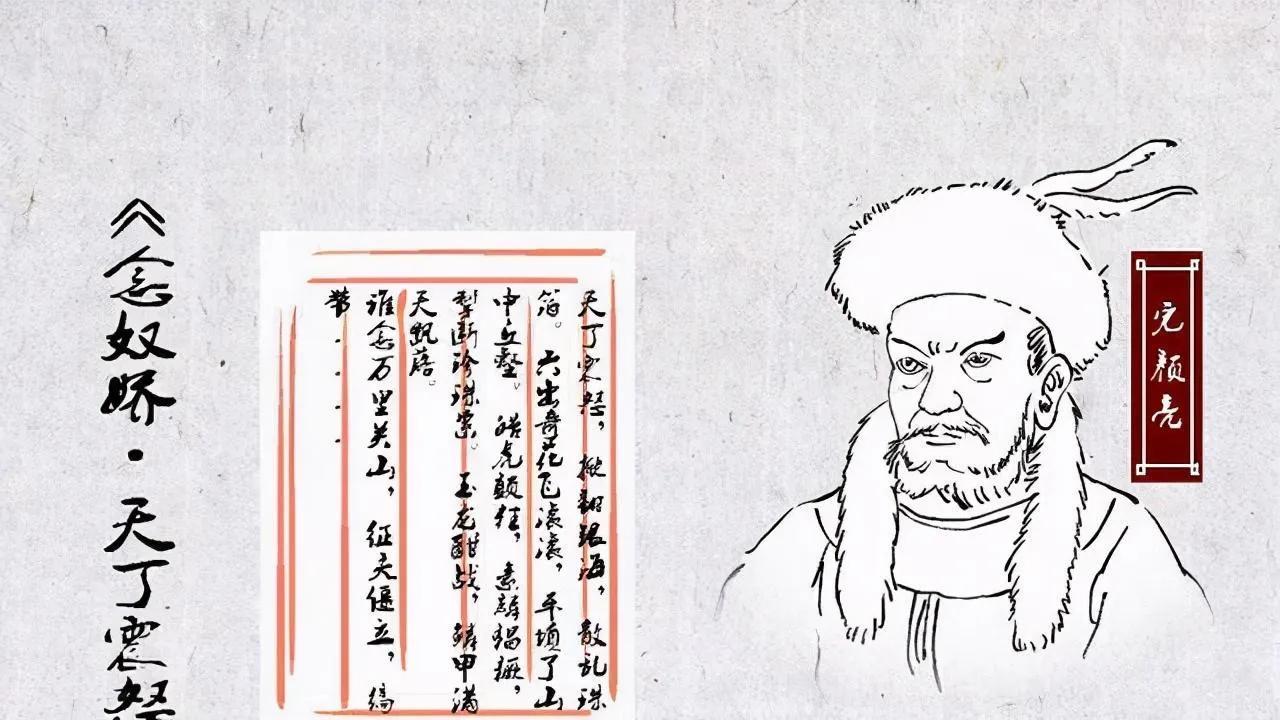 完颜亮
天丁震怒，掀翻银海，散乱珠
箔。六出奇花飞滚滚，平填了山
中丘壑。皓虎颠狂，素麟猖獗，
掣断珍珠索。玉龙酣战，鳞甲满
天飘落。
谁念万里关山，征夫僵立，缟
带....
《念奴娇·天丁震怒